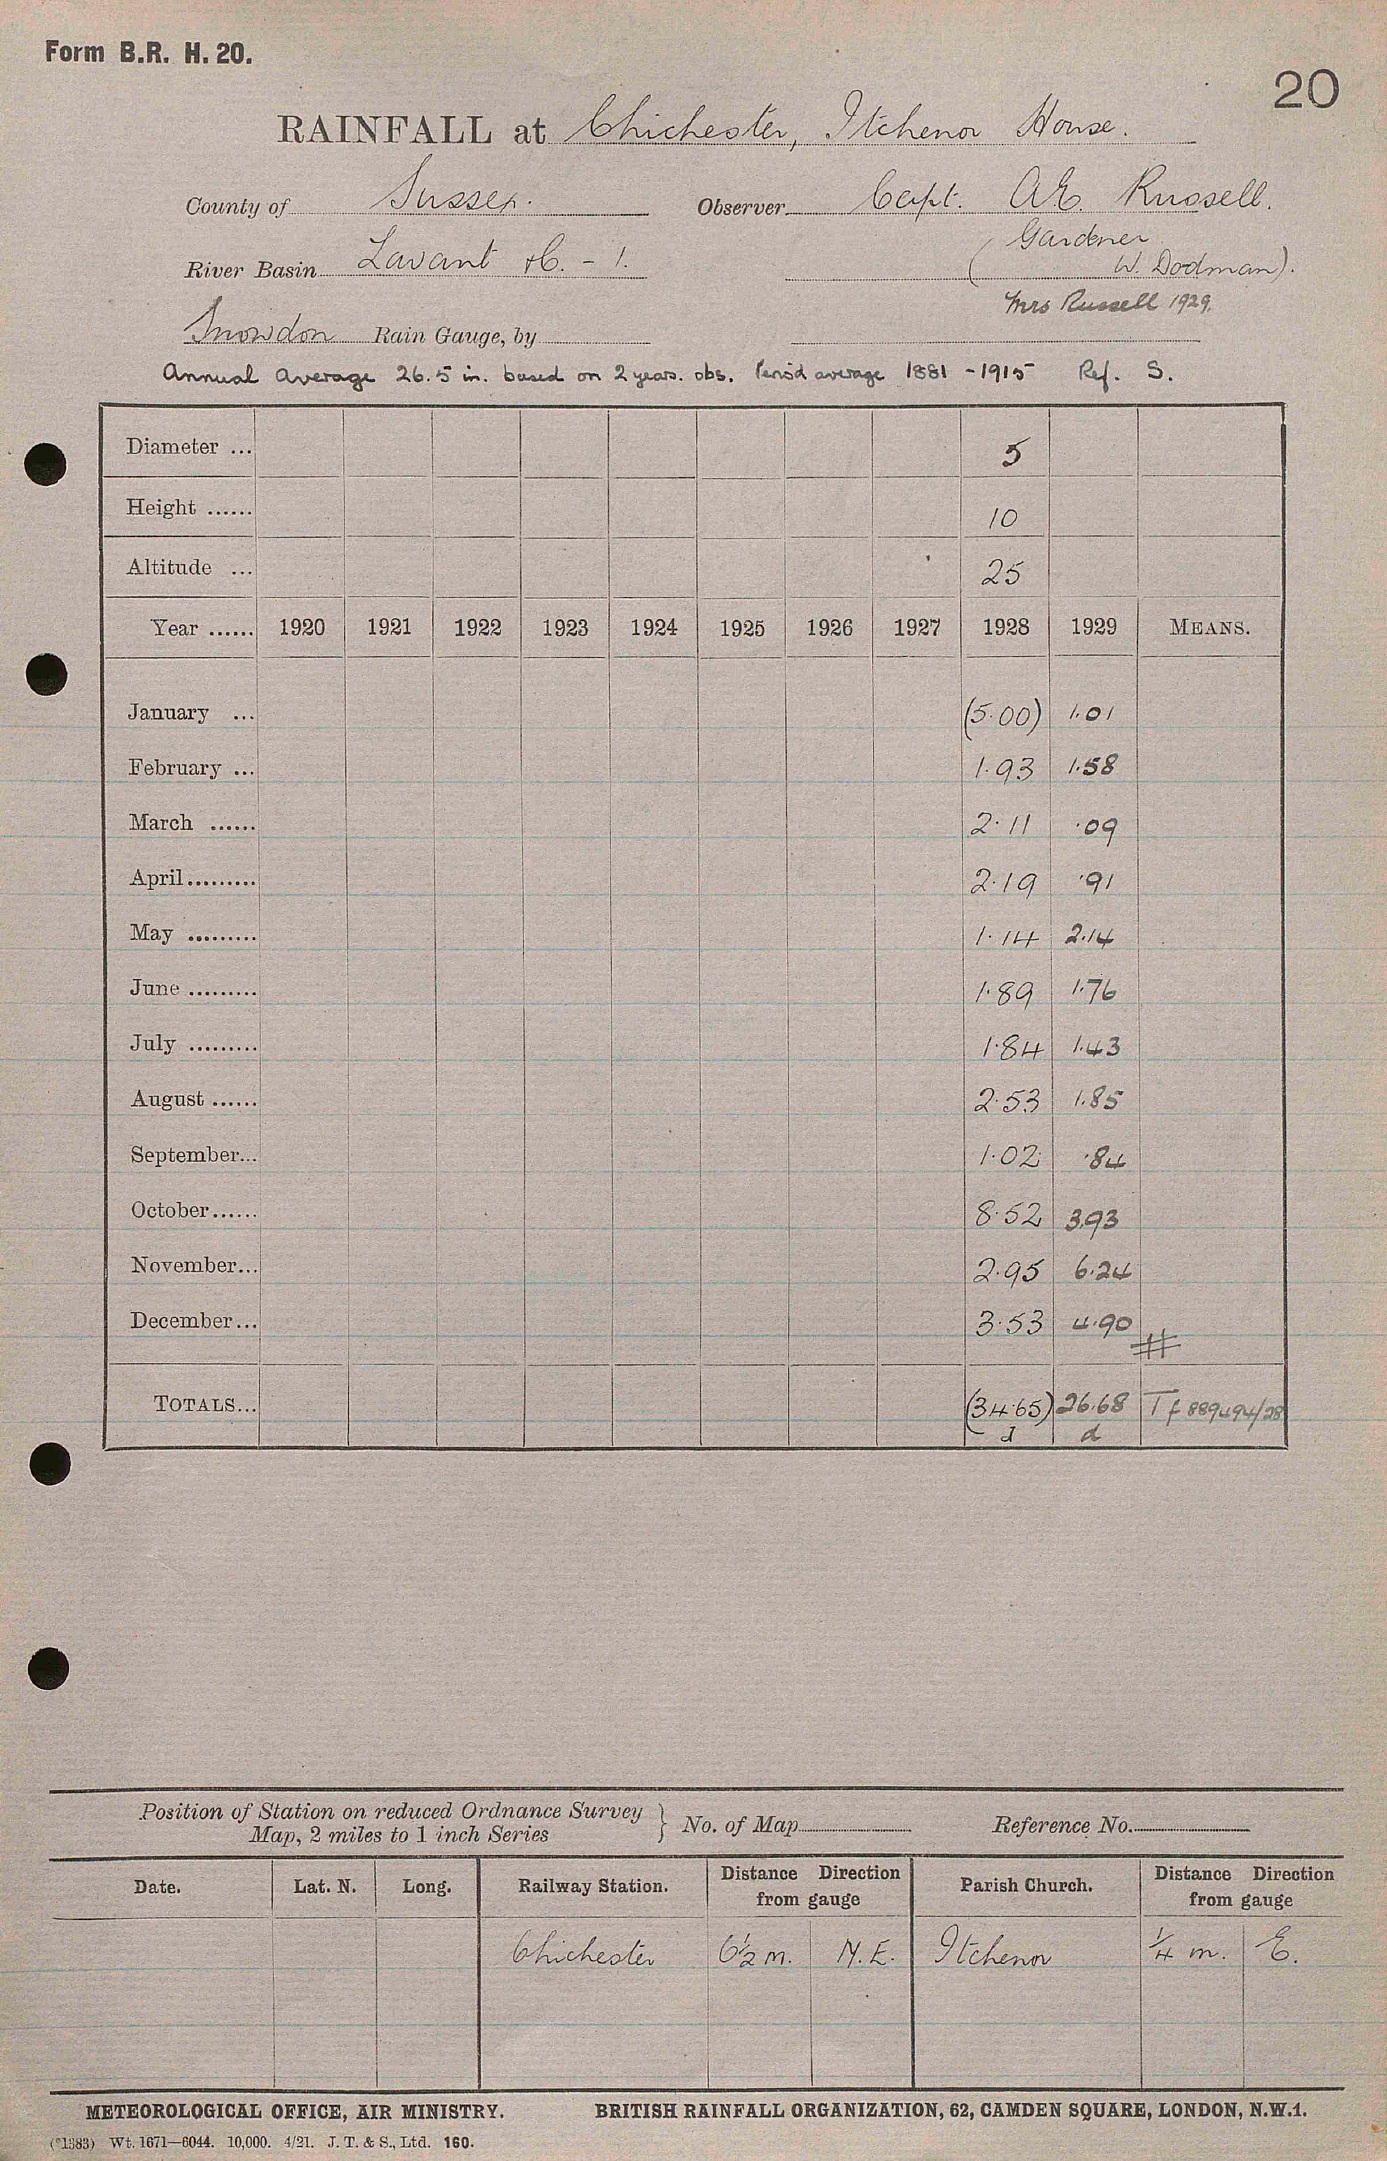 Form B.R. H. 20.
20
RAINFALL at Chichester, Itchenor House.
County of Sussex. Observer Capt. A.E. Russell.
(Gardener
River Basin Lavant &C. - 1. W. Dodman).
Mrs Russell 1929.
Snowdon Rain Gauge, by
Annual Average 26.5 in. based on 2 years. obs. Period average 1881 - 1915 Ref. S.
Diameter ... 5
Height ...... 10
Altitude ... 25
Year ...... 1920 1921 1922 1923 1924 1925 1926 1927 1928 1929 MEANS.
January ... (5.00) 1.01
February ... 1.93 1.58
March ...... 2.11 .09
April......... 2.19 .91
May ......... 1.14 2.14
June ......... 1.89 1.76
July ......... 1.84 1.43
August ...... 2.53 1.85
September... 1.02 .84
October...... 8.52 3.93
November... 2.95 6.24
December... 3.53 4.90
TOTALS... (34.65) 26.68 Tf 889494/28
d d
Position of Station on reduced Ordnance Survey
Map, 2 miles to 1 inch Series } No. of Map Reference No.
Date. Lat. N. Long. Railway Station. Distance Direction from gauge Parish Church. Distance Direction from gauge
Chichester 6½ m. N.E. Itchenor ¼ m. E.
METEOROLOGICAL OFFICE, AIR MINISTRY. BRITISH RAINFALL ORGANIZATION, 62, CAMDEN SQUARE, LONDON, N.W.1.
(*1383) Wt. 1671—6044. 10,000. 4/21. J. T. & S., Ltd. 160.